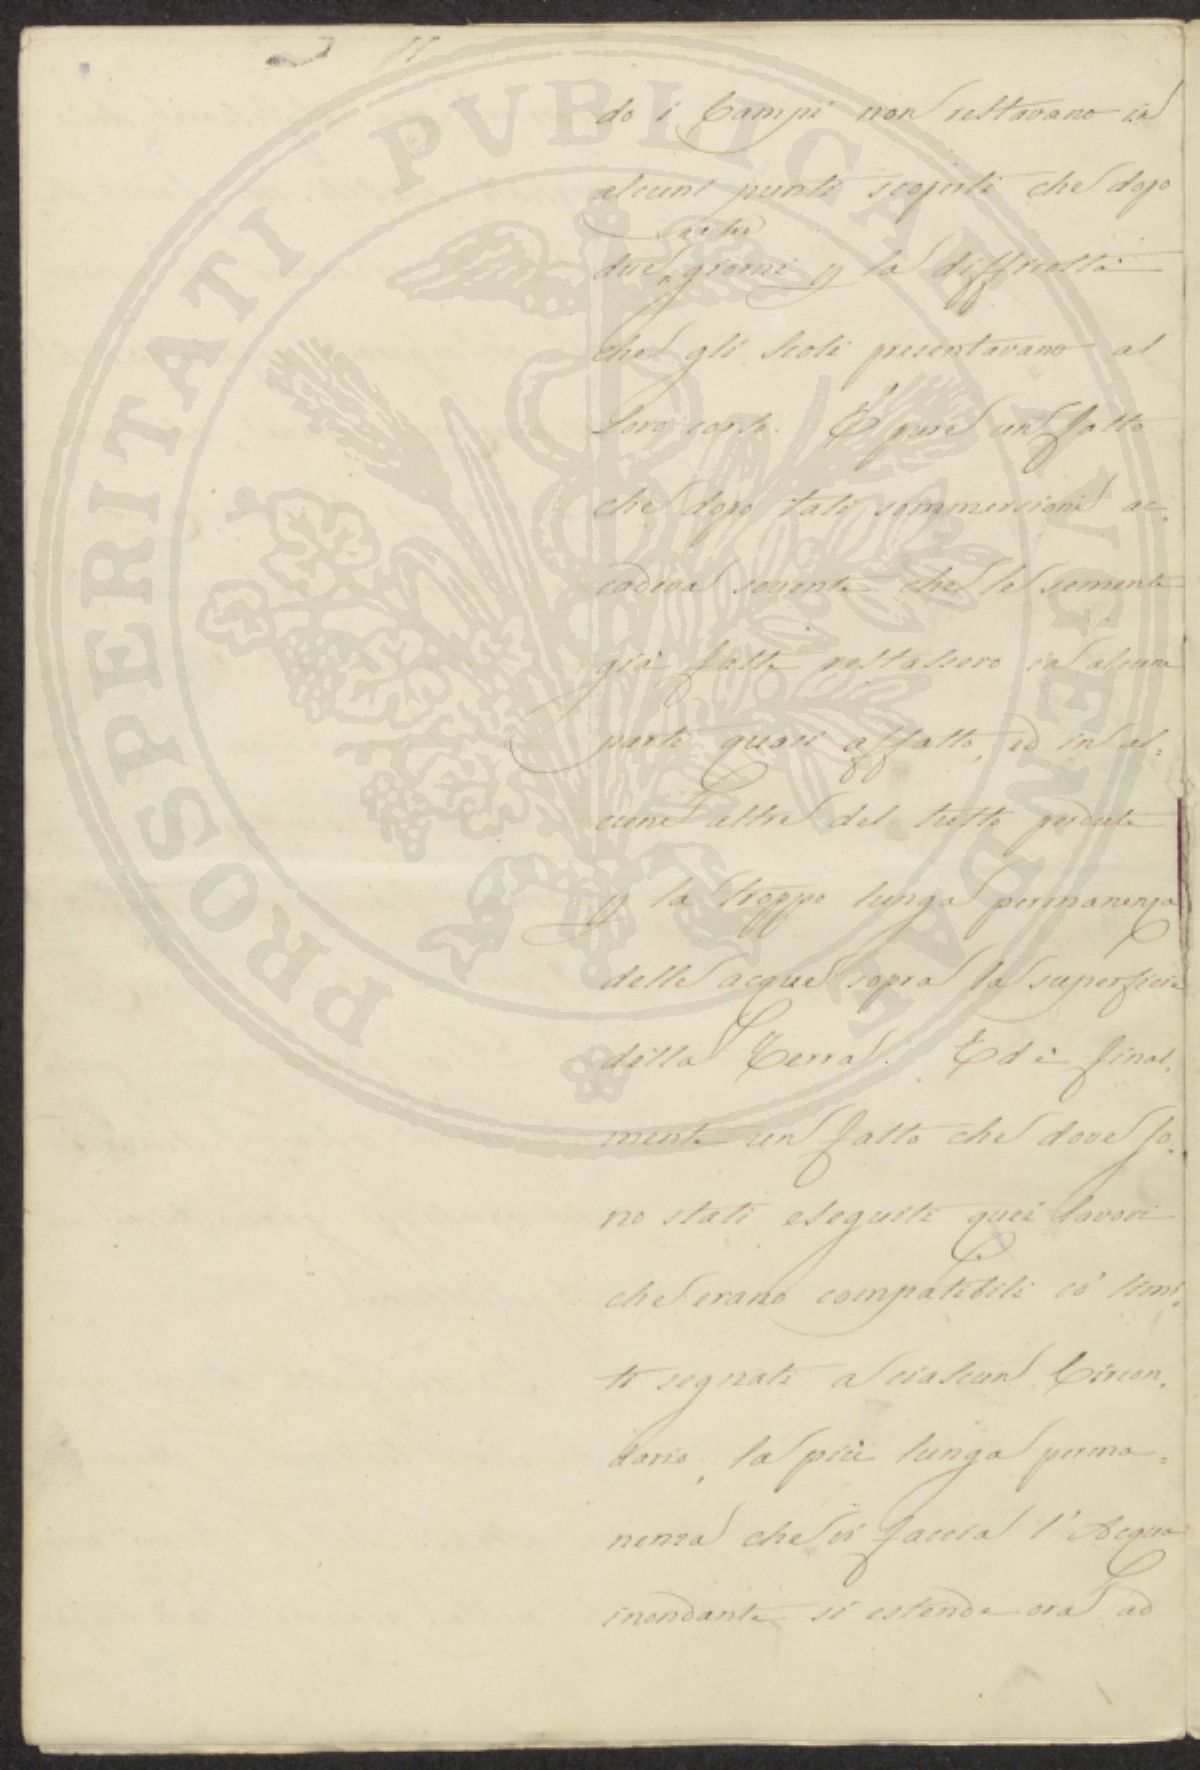 PROSPERITATI PUBLICAE AUGENDAE
do i Campi non restavano in
alcuni punti scoperti che dopo
due giorni p la difficoltà
che gli Scoli presentavano al
Loro corso. È pure un fatto
che dopo tali sommersioni ac=
cadeva sovente che le sementi
già fatte restassero in alcune
parti quasi affatto, ed in al=
cune altre del tutto perdute
p la troppo lunga permanenza
delle acque sopra la superficie
della Terra. Ed è final=
mente un fatto che dove so=
no stati eseguiti quei lavori
che erano compatibili co' limi=
ti segnati a ciascun Circon=
dario, la più lunga perma=
nenza che vi faccia l'Acqua
inondante si estende ora ad